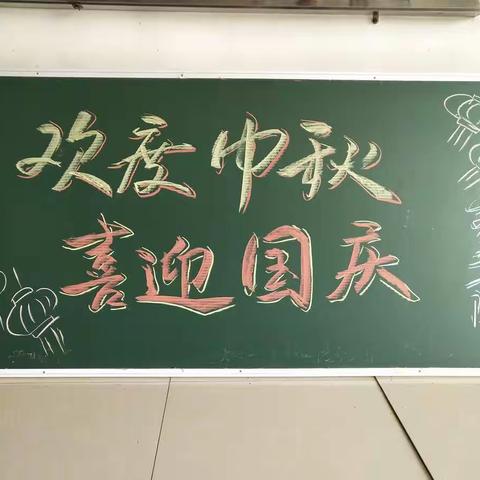 欢度中秋
喜迎国庆